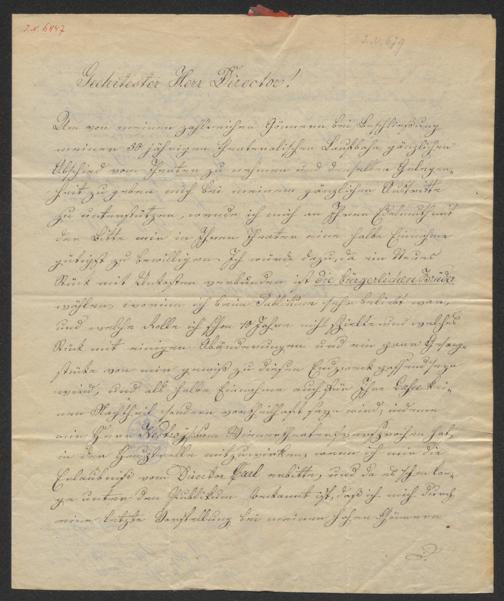 I.N. 6447
I.N. 679
Geehrtester Herr Director!
Um von meinen zahlreichen Gönnern bei Beschließung
meiner 58 jährigen theatralischen Laufbahn gänzlichen
Abschied vom Theater zu nehmen und denselben Gelegen-
heit zu geben mich bei meinem gänzlichen Austritte
zu unterstützen, wende ich mich an Ihren Edelmuth mit
der Bitte mir in Ihrem Theater eine halbe Einnahme
gütigst zu bewilligen. Ich würde dazu, da ein Neues
Stück mit Unkosten verbunden ist die Bürgerlichen Brüder
wählen, worinn ich beim Publikum sehr beliebt war,
und welche Rolle ich schon 10 Jahre nicht spielte und welches
Stück mit einigen Abänderungen und ein paar Gesangs-
stücke von mir gewiß zu diesem Endzweck passend seyn
wird, und als halbe Einnahme auch für Ihre kei-
nen Nachtheil sondern vortheilhaft seyn wird, indem
mir Herr versprochen hat,
in der mitzuwirken, wenn ich mir die
Erlaubniß vom Director Carl erbitte, und da es schon lan-
ge unter dem Publikum bekannt ist, daß ich mich durch
eine letzte Vorstellung bei meinen hohen Gönnern